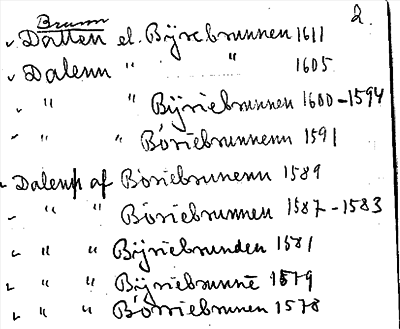 Brunn 2.
Datten el. Bÿrebrunnen 1611
Dalenn " " 1605
" " Bÿriebrunnen 1600-1594
" " Böriebrunnenn 1591
Dalenn af Böriebrunenn 1589
" " Böriebrunnen 1587-1583
" " Bÿriebrunden 1581
" " Bÿriebrunnē 1579
" " Börriebrunen 1578